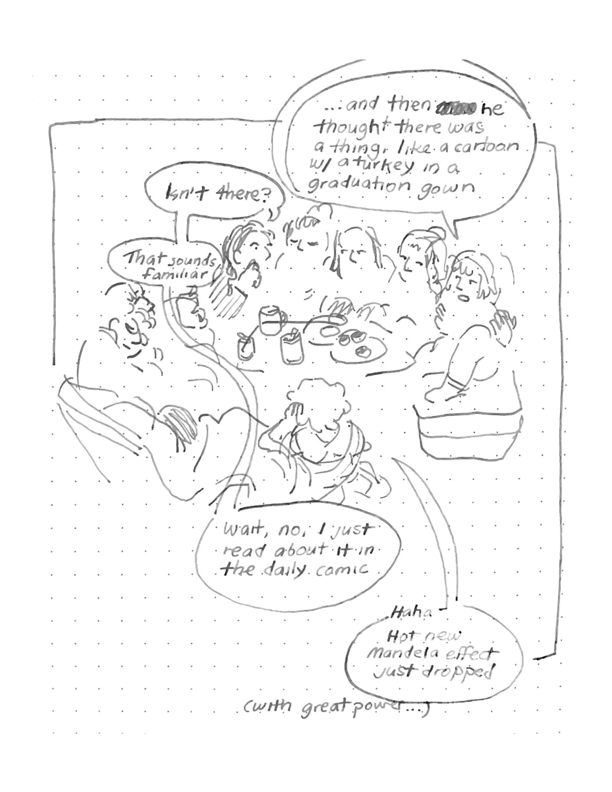 ...and then he
thought there was
a thing, like a cartoon
w/ a turkey in a
graduation gown
Isn't there?
That sounds
familiar
Wait, no, I just
read about it in
the daily comic
Haha
Hot new
mandela effect
just dropped
(with great power...)